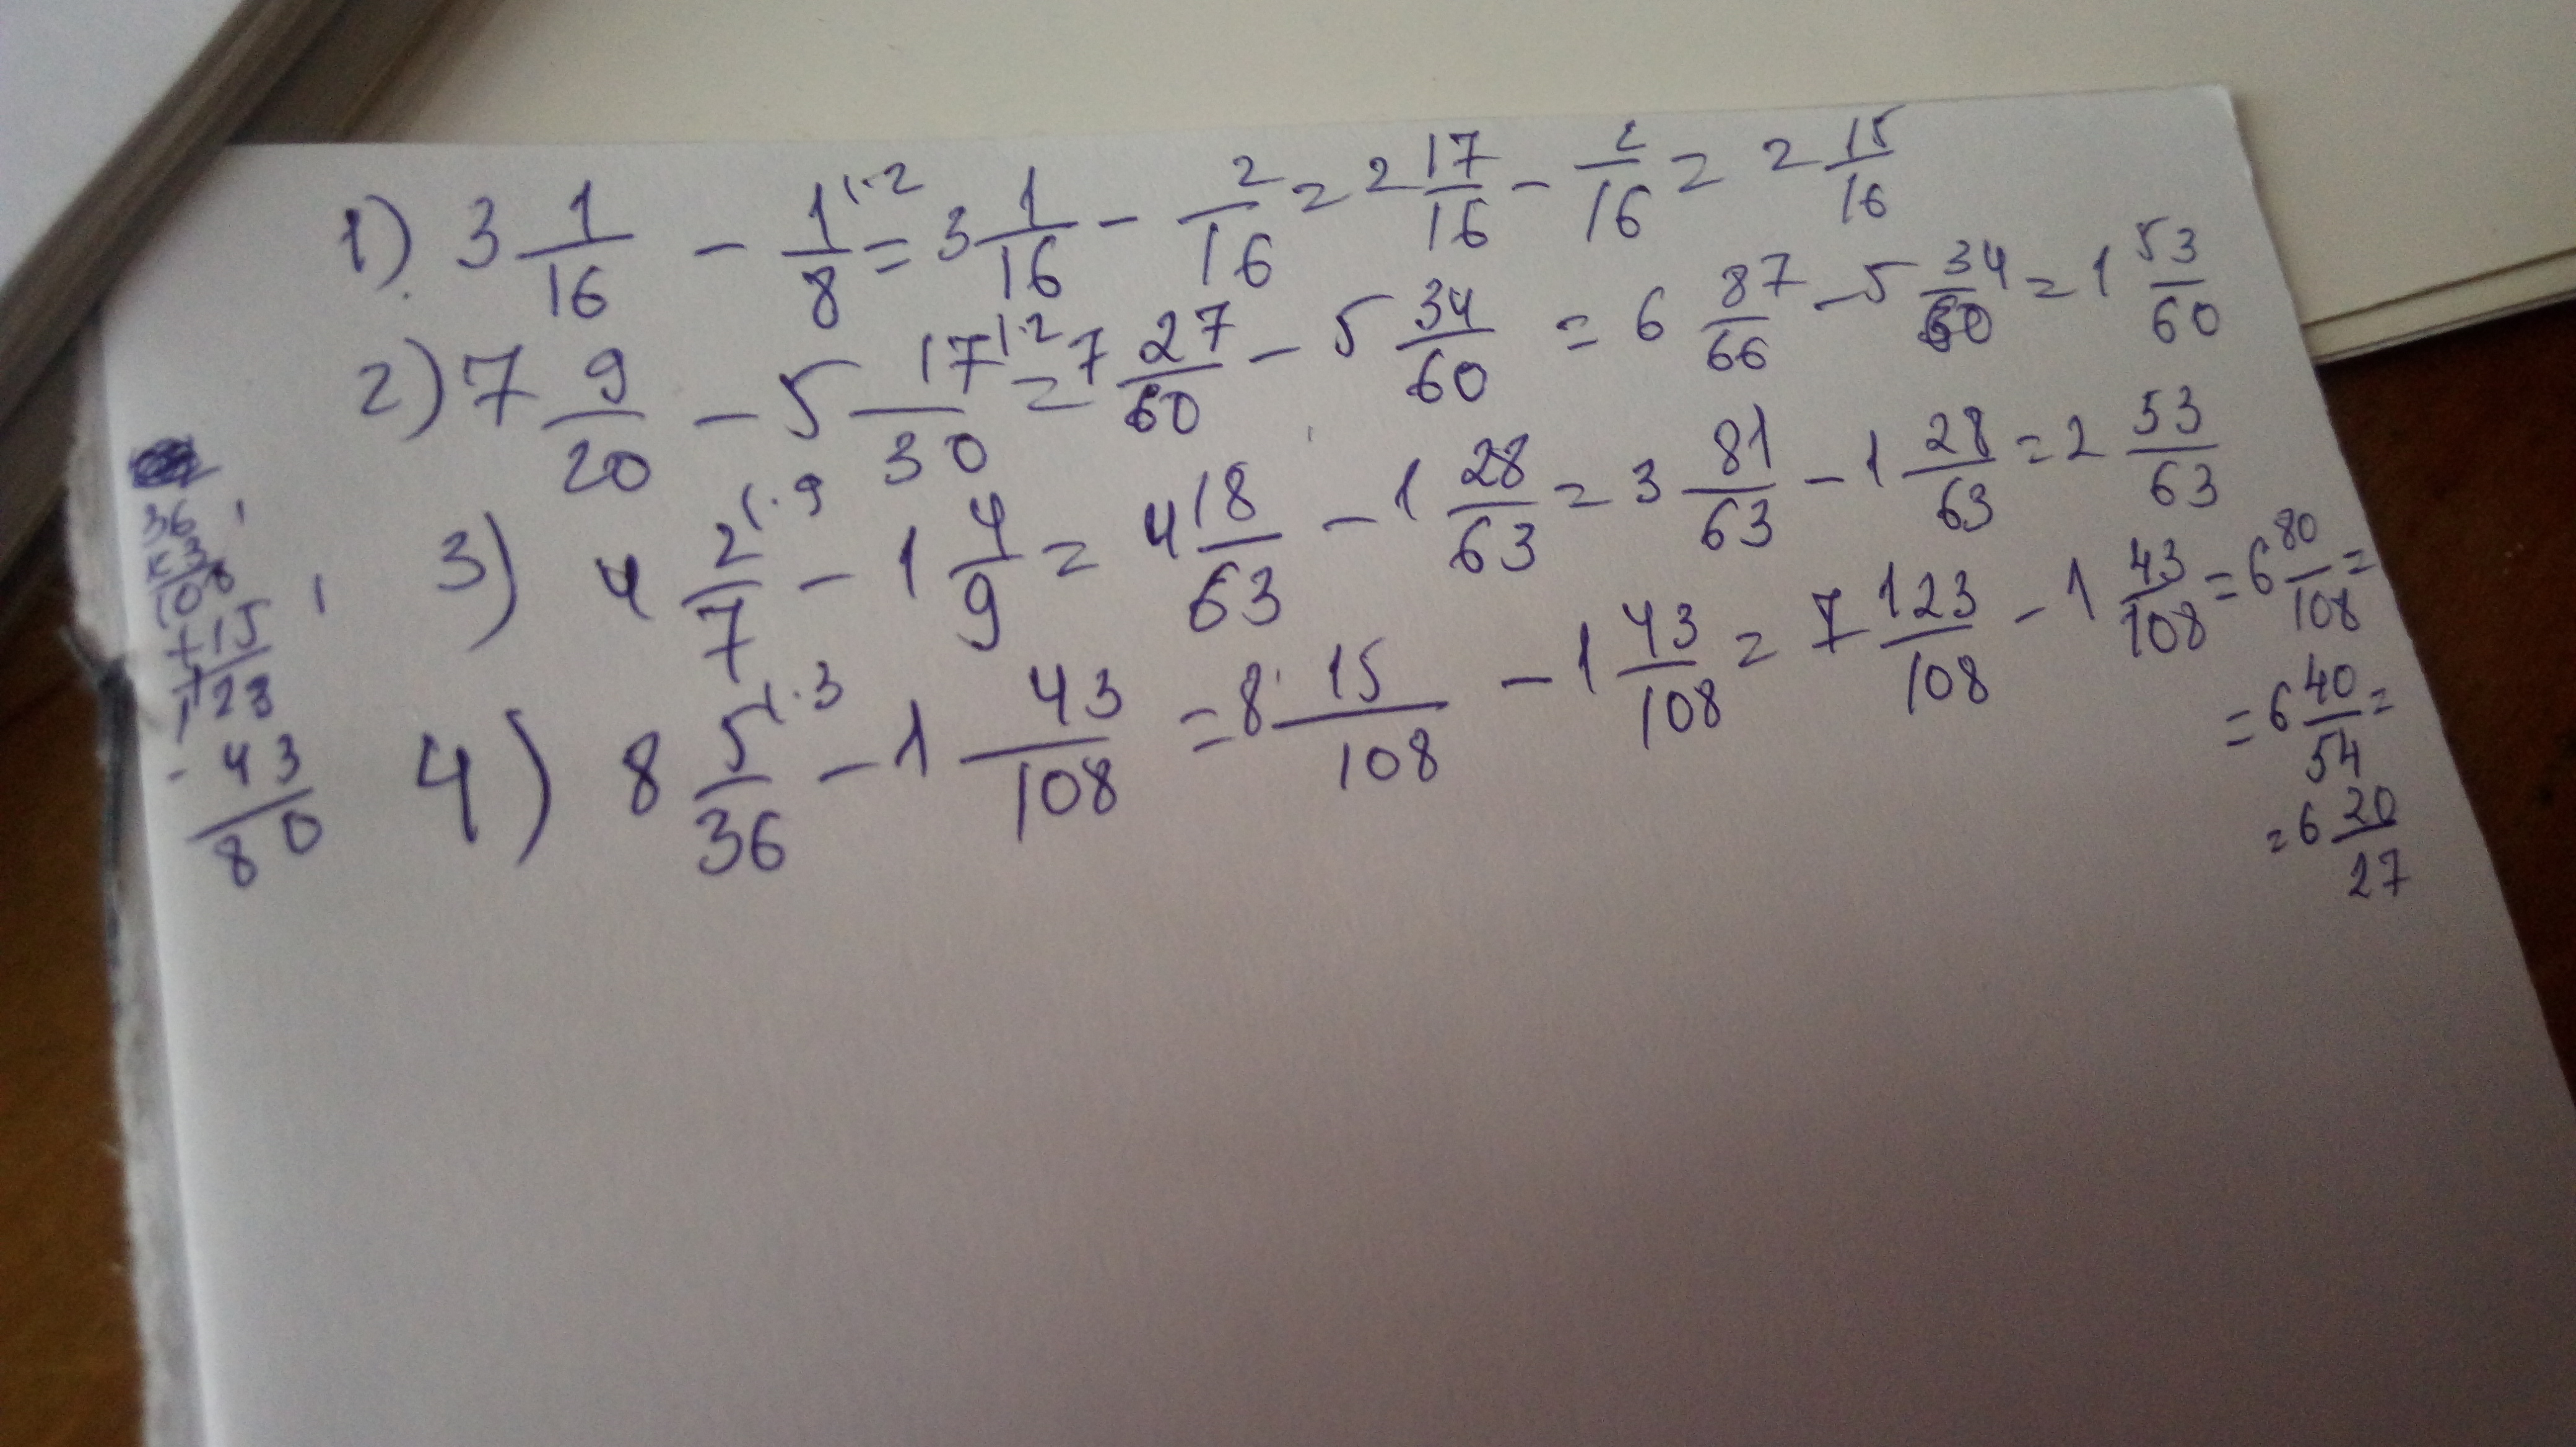 1) 3 1/16 - 1/8 |·2 = 3 1/16 - 2/16 = 2 17/16 - 2/16 = 2 15/16
2) 7 9/20 - 5 17/30 |·2 = 7 27/60 - 5 34/60 = 6 87/66 - 5 34/60 = 1 53/60
3) 4 2/7 |·9 - 1 4/9 = 4 18/63 - 1 28/63 = 3 81/63 - 1 28/63 = 2 53/63
4) 8 5/36 |·3 - 1 43/108 = 8 15/108 - 1 43/108 = 7 123/108 - 1 43/108 = 6 80/108 =
= 6 40/54 =
= 6 20/27
36
3
108
+ 15
123
- 43
80